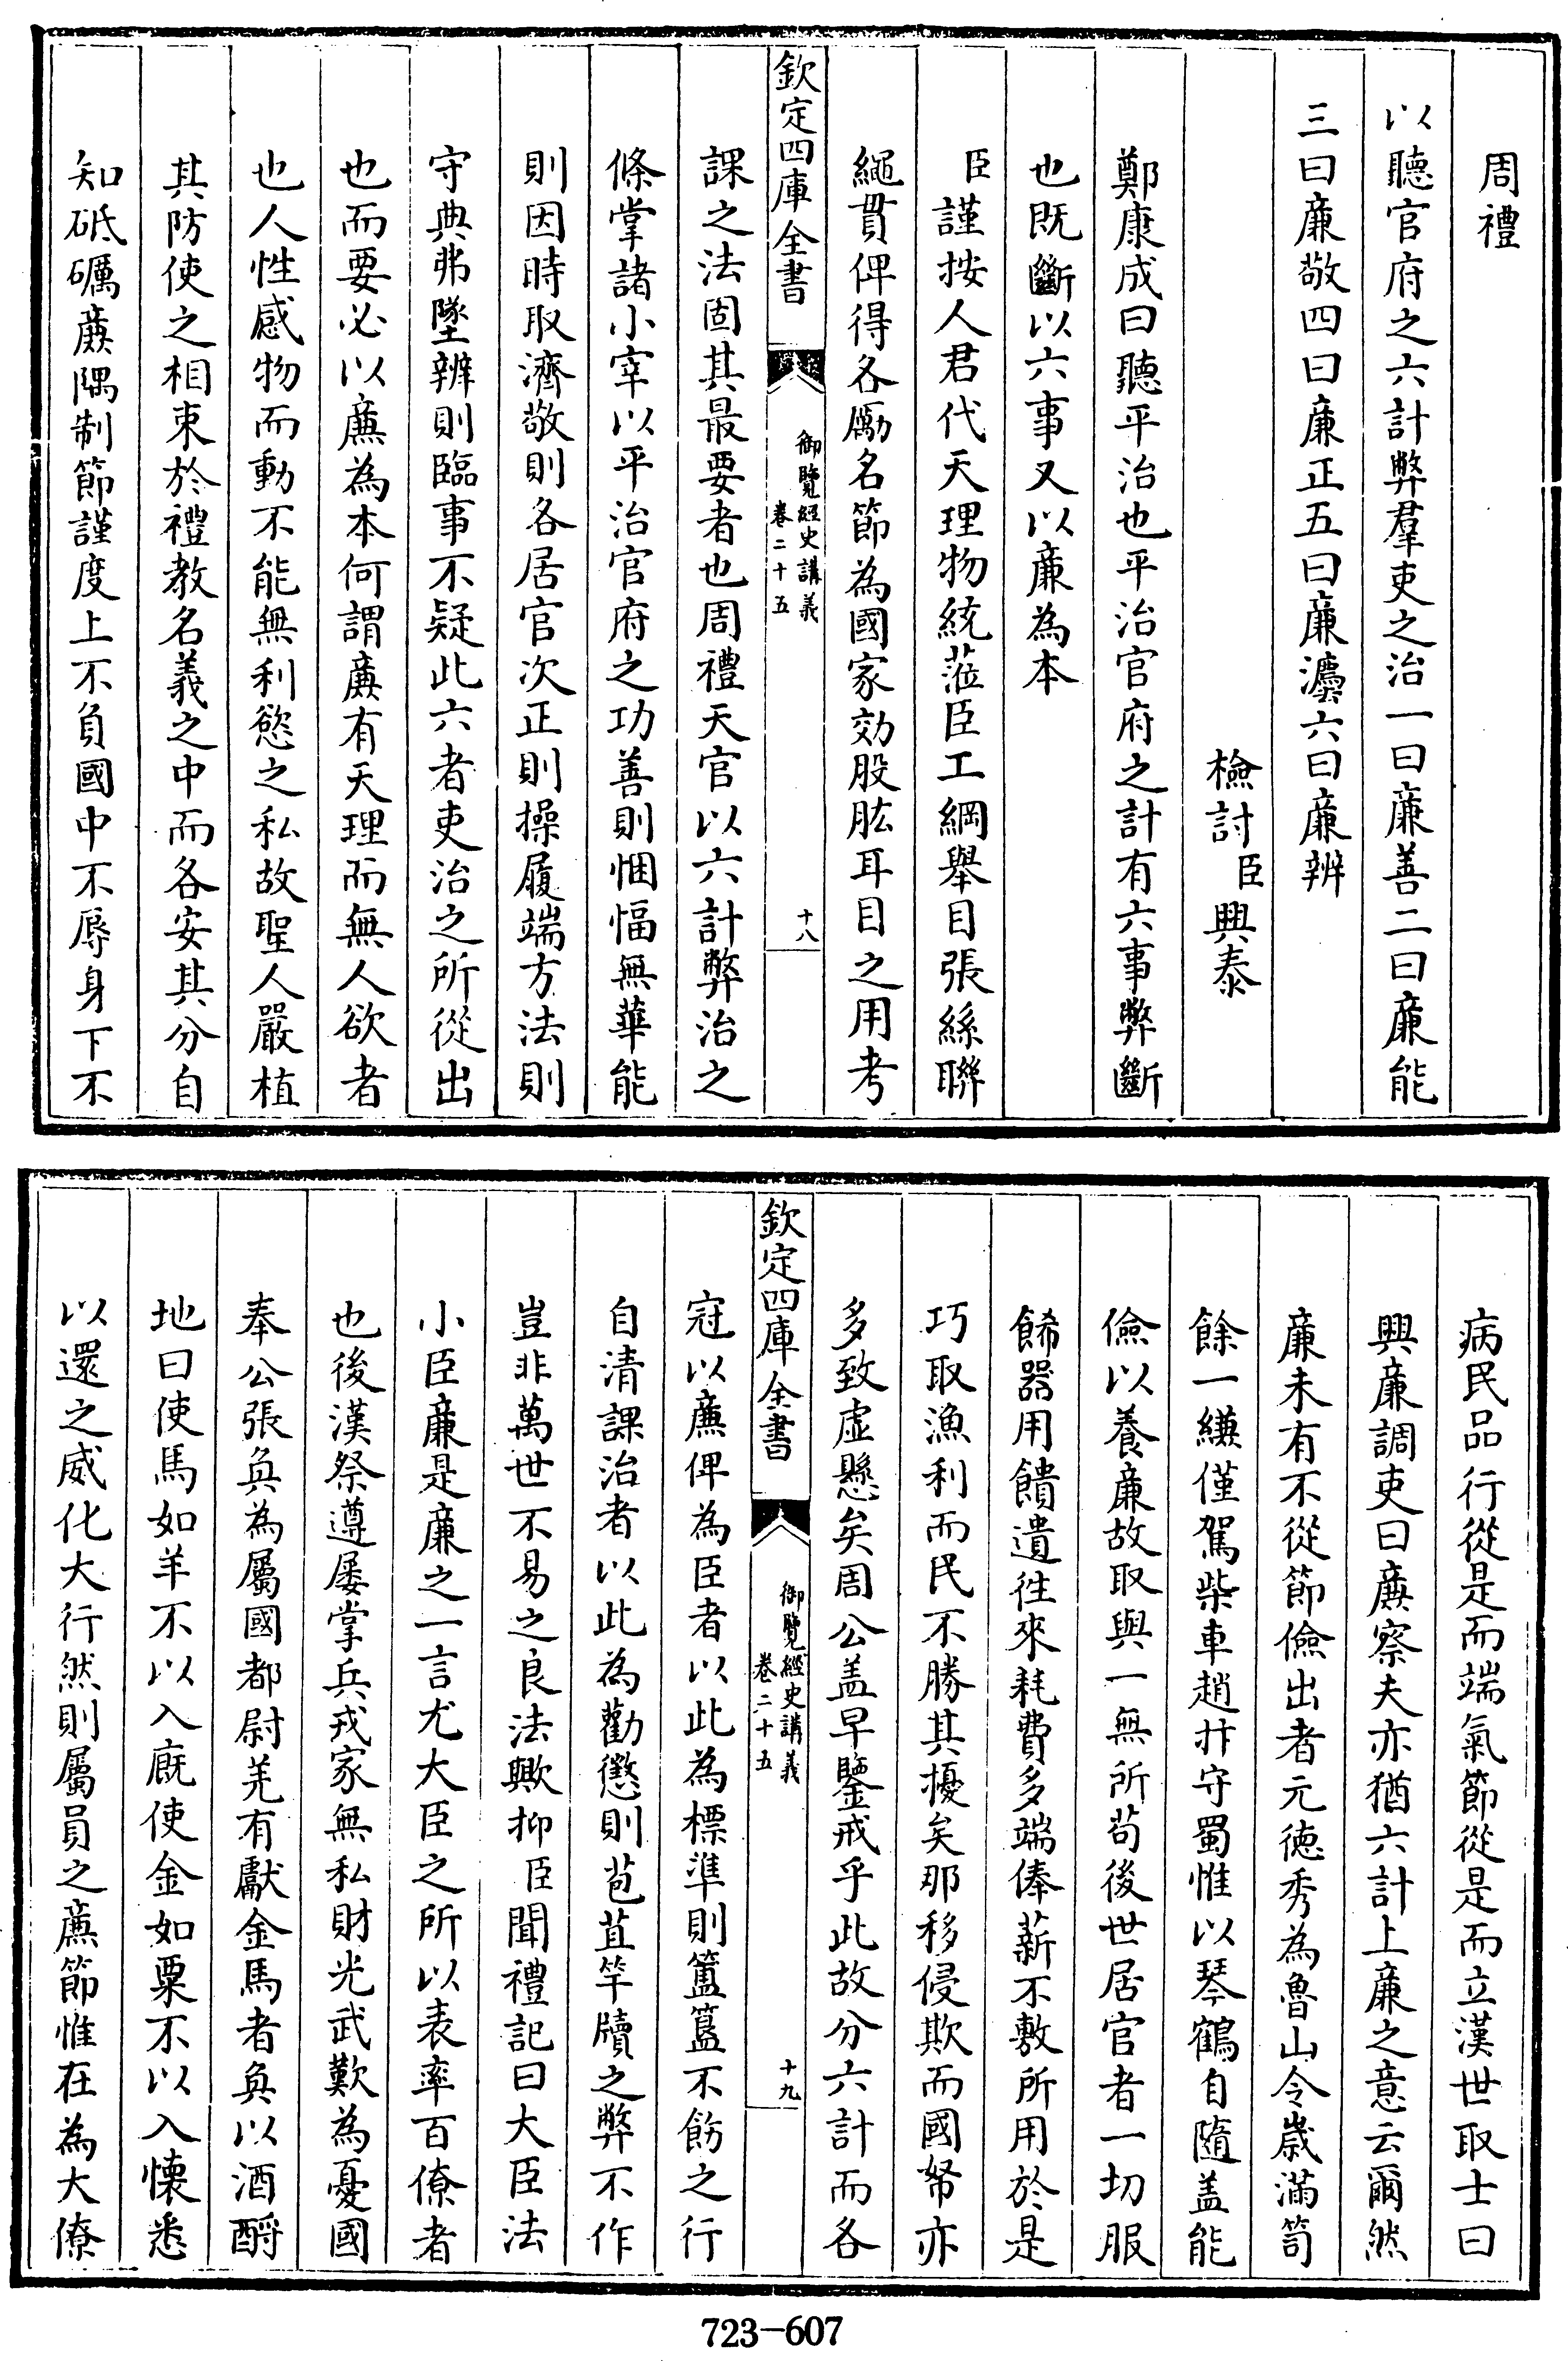 周禮
以聽官府之六計弊羣吏之治一曰廉善二曰廉能
三曰廉敬四曰廉正五曰廉灋六曰廉辨
檢討臣興泰
鄭康成曰聽平治也平治官府之計有六事弊斷
也既斷以六事又以廉為本
臣謹按人君代天理物統蒞臣工綱舉目張絲聯
繩貫俾得各勵名節為國家効股肱耳目之用考
欽定四庫全書
御覽經史講義
卷二十五
十八
課之法固其最要者也周禮天官以六計弊治之
條掌諸小宰以平治官府之功善則悃愊無華能
則因時取濟敬則各居官次正則操履端方法則
守典弗墜辨則臨事不疑此六者吏治之所從出
也而要必以廉為本何謂廉有天理而無人欲者
也人性感物而動不能無利慾之私故聖人嚴植
其防使之相束於禮教名義之中而各安其分自
知砥礪廉隅制節謹度上不負國中不辱身下不
病民品行從是而端氣節從是而立漢世取士曰
興廉調吏曰廉察夫亦猶六計上廉之意云爾然
廉未有不從節儉出者元德秀為魯山令歲滿笥
餘一縑僅駕柴車趙抃守蜀惟以琴鶴自隨盖能
儉以養廉故取與一無所苟後世居官者一切服
餙器用饋遺徃來耗費多端俸薪不敷所用於是
巧取漁利而民不勝其擾矣那移侵欺而國帑亦
多致虛懸矣周公盖早鑒戒乎此故分六計而各
欽定四庫全書
御覽經史講義
卷二十五
十九
冠以廉俾為臣者以此為標準則簠簋不飭之行
自清課治者以此為勸懲則苞苴竿牘之弊不作
豈非萬世不易之良法歟抑臣聞禮記曰大臣法
小臣廉是廉之一言尤大臣之所以表率百僚者
也後漢祭遵屡掌兵戎家無私財光武歎為憂國
奉公張奐為屬國都尉羌有獻金馬者奐以酒酹
地曰使馬如羊不以入廐使金如粟不以入懷悉
以還之威化大行然則屬員之廉節惟在為大僚
723-607